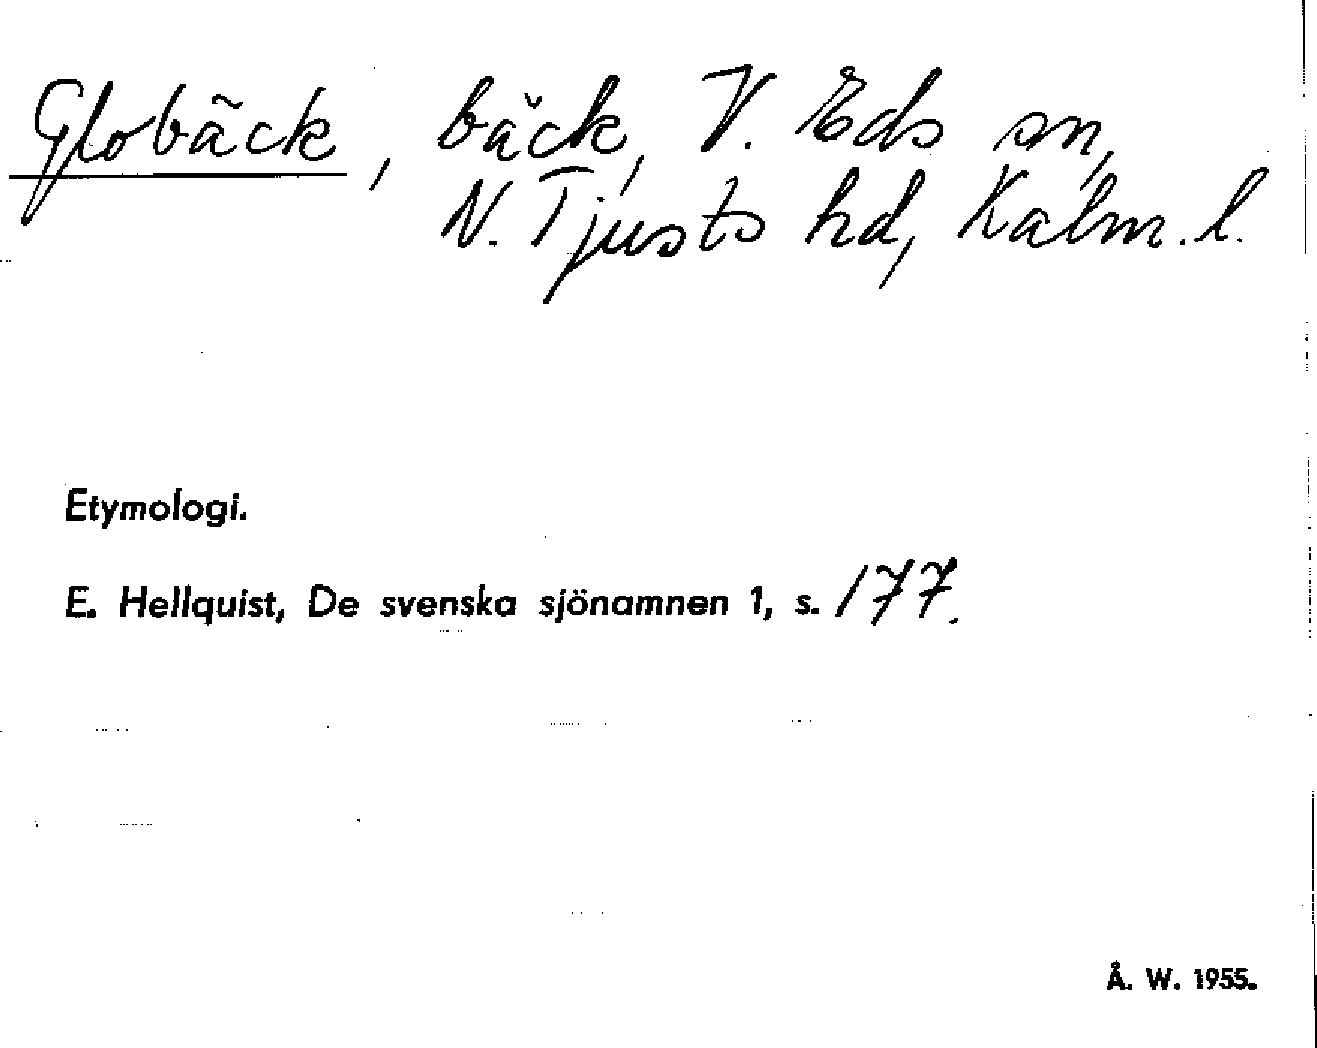 Globäck, bäck, V. Eds sn,
N. Tjusts hd, Kalm. l.
Etymologi.
E. Hellquist, De svenska sjönamnen 1, s. 177.
Å. W. 1955.